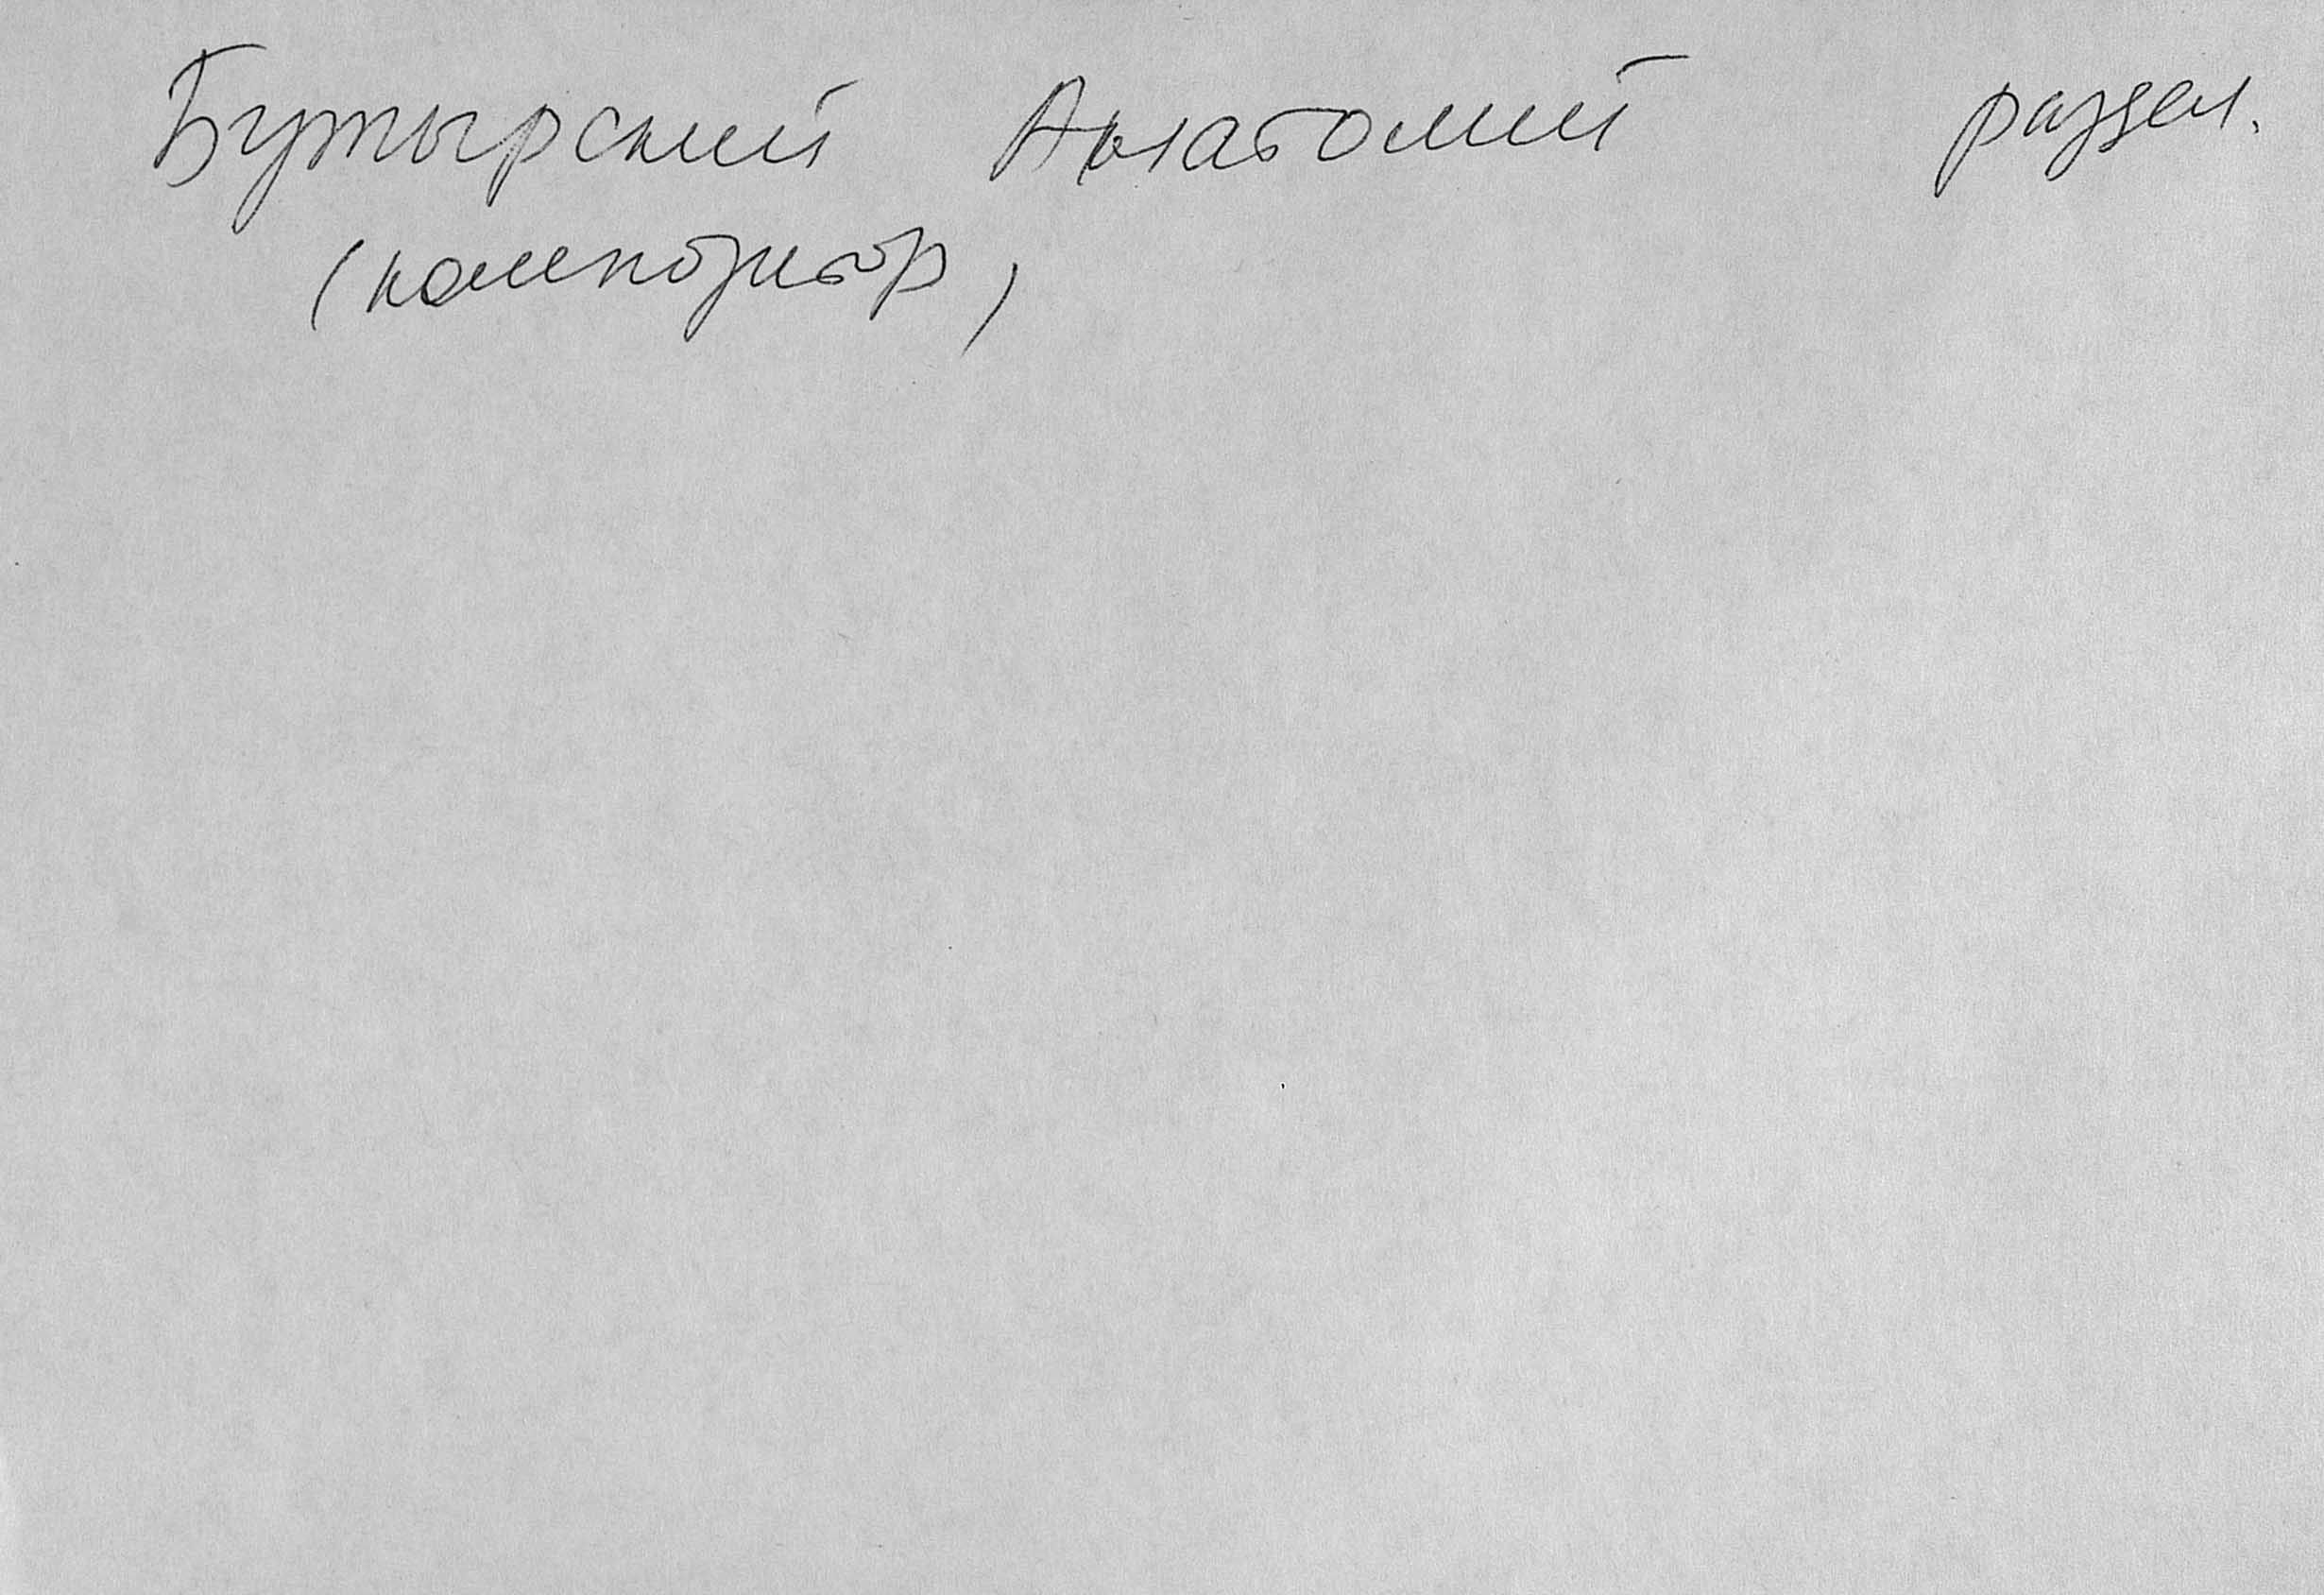 Бутырский Анатолий раздел.
(композитор)